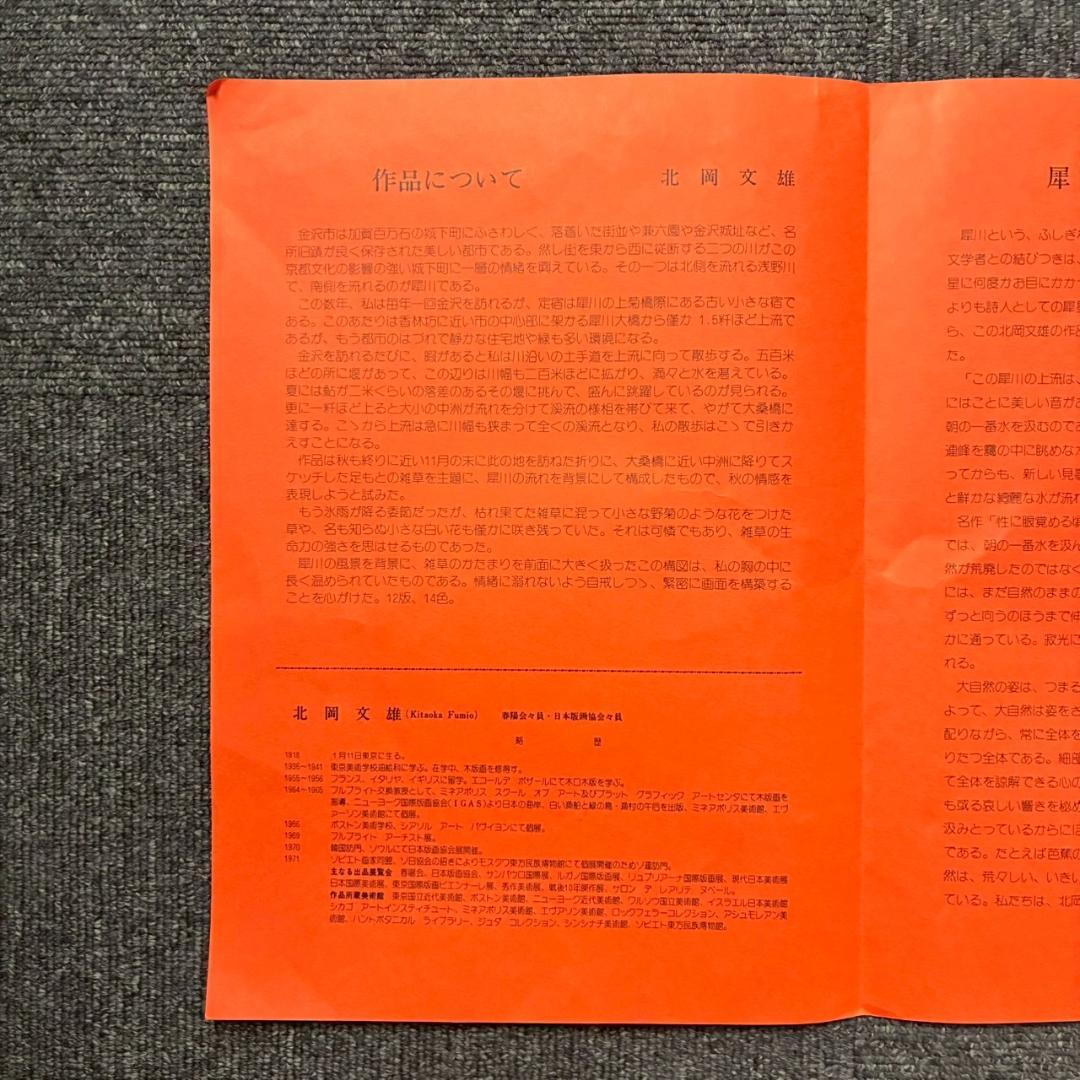 作品について 北岡文雄
金沢市は加賀百万石の城下町にふさわしく、落着いた街並や兼六園や金沢城址など、名
所旧蹟が良く保存された美しい都市である。然し街を東から西に従断する二つの川がこの
京都文化の影響の強い城下町に一層の情緒を興えている。その一つは北側を流れる浅野川
で、南側を流れるのが犀川である。
この数年、私は毎年一回金沢を訪れるが、定宿は犀川の上菊橋際にある古い小さな宿で
ある。このあたりは香林坊に近い市の中心部に架かる犀川大橋から僅か 1.5粁ほど上流で
あるが、もう都市のはづれで静かな住宅地や緑も多い環境になる。
金沢を訪れるたびに、暇があると私は川沿いの土手道を上流に向って散歩する。五百米
ほどの所に堰があって、この辺りは川幅も二百米ほどに拡がり、満々と水を湛えている。
夏には鮎が二米くらいの落差のあるその堰に挑んで、盛んに跳躍しているのが見られる。
更に一粁ほど上ると大小の中洲が流れを分けて渓流の様相を帯びて来て、やがて大桑橋に
達する。こゝから上流は急に川幅も狭まって全くの渓流となり、私の散歩はこゝで引きか
えすことになる。
作品は秋も終りに近い11月の末に此の地を訪ねた折りに、大桑橋に近い中洲に降りてス
ケッチした足もとの雑草を主題に、犀川の流れを背景にして構成したもので、秋の情感を
表現しようと試みた。
もう氷雨が降る季節だったが、枯れ果てた雑草に混って小さな野菊のような花をつけた
草や、名も知らぬ小さな白い花も僅かに咲き残っていた。それは可憐でもあり、雑草の生
命力の強さを思はせるものであった。
犀川の風景を背景に、雑草のかたまりを前面に大きく扱ったこの構図は、私の胸の中に
長く温められていたものである。情緒に溺れないよう自戒しつゝ、緊密に画面を構築する
ことを心がけた。12版、14色。
北岡文雄(Kitaoka Fumio) 春陽会々員・日本版画協会々員
略歴
1918 1月11日東京に生る。
1936~1941 東京美術学校油絵科に学ぶ。在学中、木版画を修得す。
1955~1956 フランス、イタリヤ、イギリスに留学。エコールデ ボザールにて木口木版を学ぶ。
1964~1965 フルブライト交換教授として、ミネアポリス スクール オブ アート及びプラット グラフィック アートセンタにて木版画を
指導、ニューヨーク国際版画協会(IGAS)より日本の海岸、白い漁船と緑の島・漁村の午后を出版、ミネアポリス美術館、エヴ
ァーソン美術館にて個展。
1966 ボストン美術学校、シアソル アート パヴイヨンにて個展。
1969 フルブライト アーチスト展。
1970 韓国訪問、ソウルにて日本版画協会展開催。
1971 ソビエト画家同盟、ソ日協会の招きによりモスクワ東方民族博物館にて個展開催のためソ連訪問。
主なる出品展覧会 春陽会、日本版画協会、サンパウロ国際展、ルガノ国際版画展、リュブリアーナ国際版画展、現代日本美術展
日本国際美術展、東京国際版画ビエンナーレ展、秀作美術展、戦後10年傑作展、サロン デ レアリテ ヌベール。
作品所蔵美術館 東京国立近代美術館、ボストン美術館、ニューヨーク近代美術館、ワルソウ国立美術館、イスラエル日本美術館
シカゴ アートインスティチュート、ミネアポリス美術館、エヴァソン美術館、ロックフェラーコレクション、アシュモレアン美
術館、ハントボタニカル ライブラリー、ジュダ コレクション、シンシナチ美術館、ソビエト東方民族博物館。
犀
犀川という、ふしぎな
文学者との結びつきは、
星に何度かお目にかか
よりも詩人としての犀星
ら、この北岡文雄の作品
た。
「この犀川の上流は、
にはことに美しい音があ
朝の一番水を汲むのであ
連峰を靄の中に眺めな
ってからも、新しい見
と鮮かな綺麗な水が流れ
名作「性に眼覚める頃
では、朝の一番水を汲ん
然が荒廃したのではなく
には、まだ自然のままの
ずっと向うのほうまで
かに通っている。寂光に
れる。
大自然の姿は、つまる
よって、大自然は姿をさ
配りながら、常に全体を
りたつ全体である。細部
て全体を諒解できる心の
も或る哀しい響きを秘め
汲みとっているからにほ
である。たとえば芭蕉の
然は、荒々しい、いきい
ている。私たちは、北岡